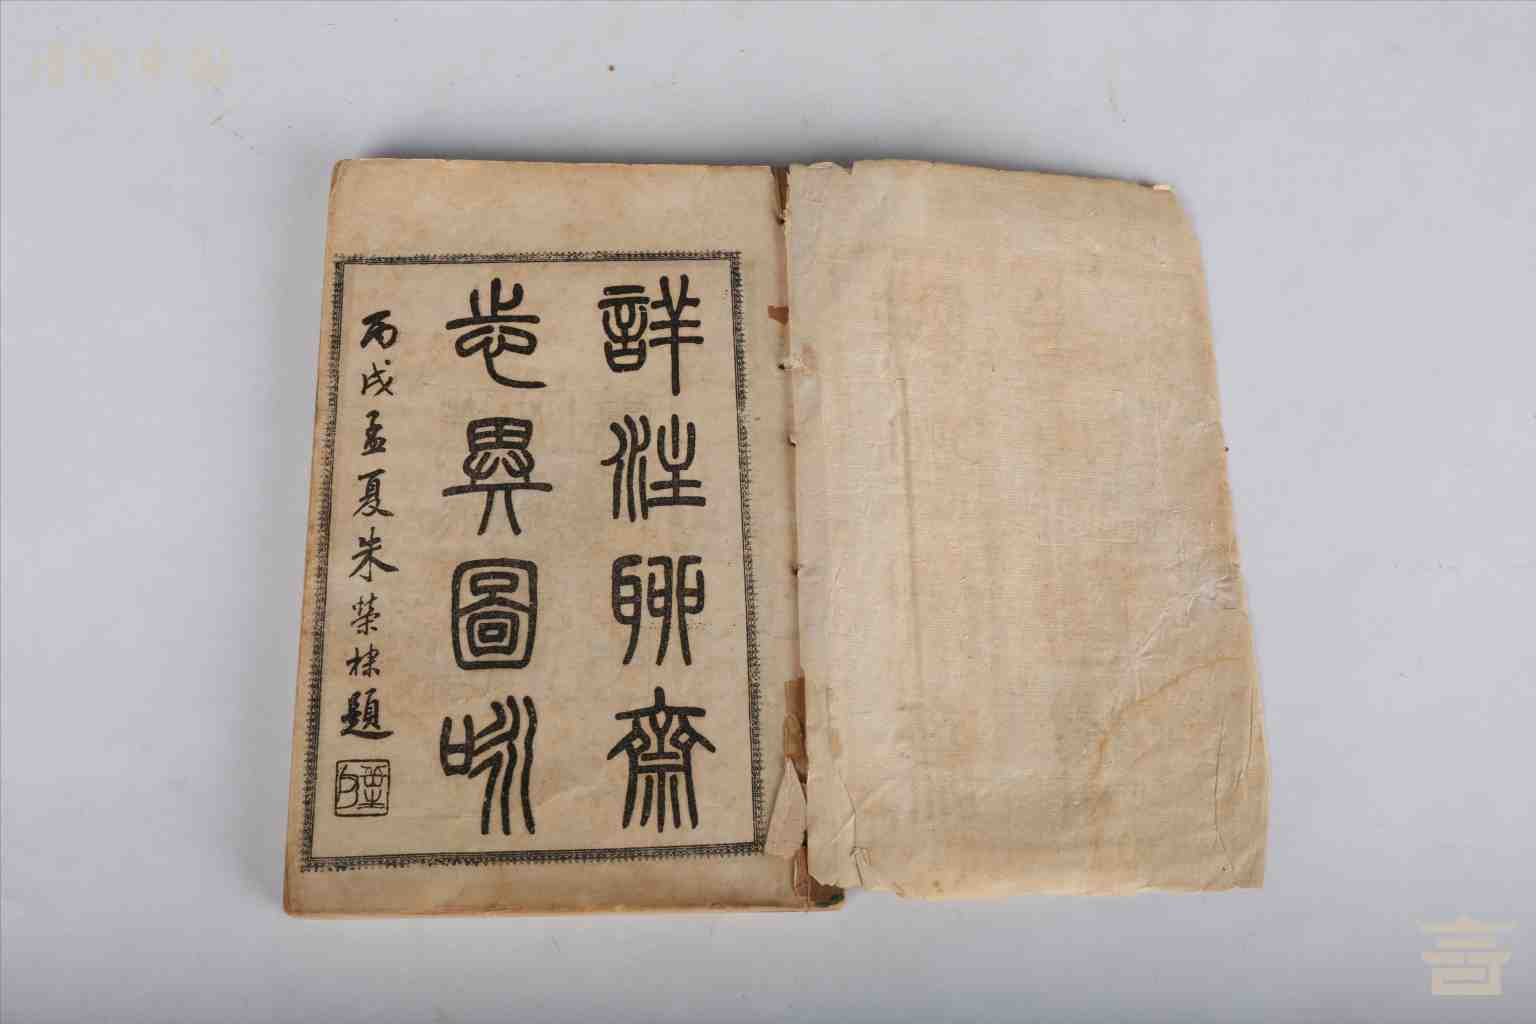 詳注聊齋
志異圖咏
丙戌孟夏朱榮棣題